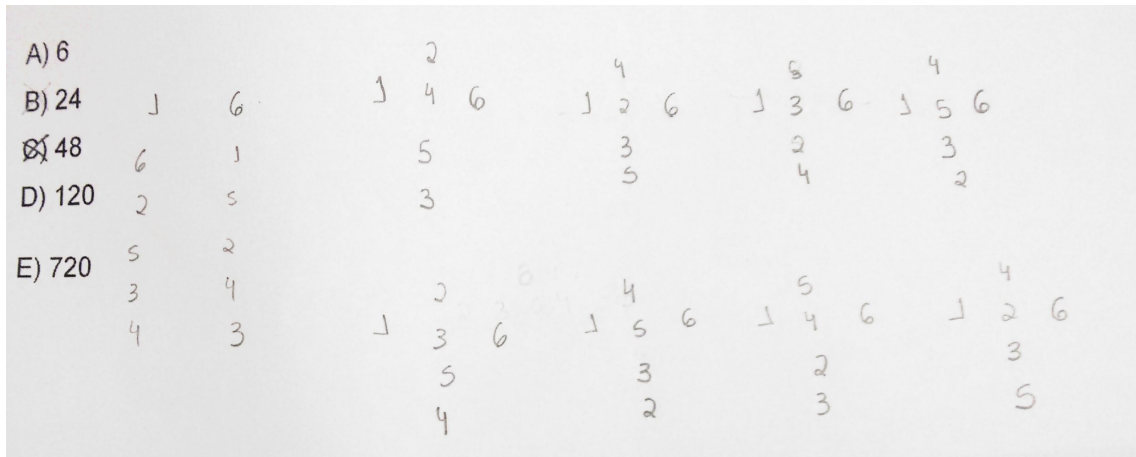 A) 6
B) 24
C) 48
D) 120
E) 720
1 6
6 1
2 5
5 2
3 4
4 3
2
1 4 6
5
3
4
1 2 6
3
5
1 3 6
2
4
4
1 5 6
3
2
2
1 3 6
5
4
4
1 5 6
3
2
5
1 4 6
2
3
4
1 2 6
3
5